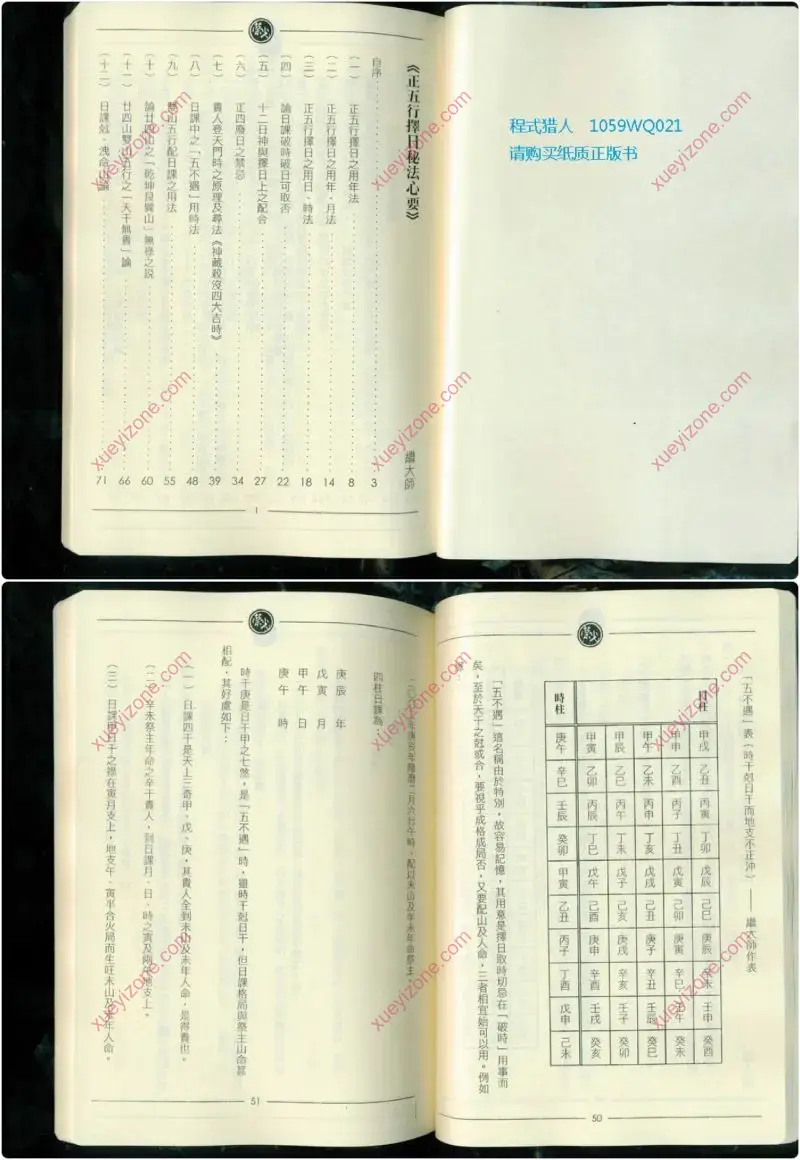 《正五行擇日秘法心要》
繼大師
自序 3
(一) 正五行擇日之用年法 8
(二) 正五行擇日之用年、月法 14
(三) 正五行擇日之用日、時法 18
(四) 論日課破時破日可取否 22
(五) 十二日神與擇日上之配合 27
(六) 正四廢日之禁忌 34
(七) 貴人登天門時之原理及尋法《神藏殺沒四大吉時》 39
(八) 日課中之「五不遇」用時法 48
(九) 雙山五行配日課之用法 55
(十) 論廿四山之「乾坤艮巽山」無祿之說 60
(十一) 廿四山雙山五行之「天干無貴」論 66
(十二) 日課尅、洩命山論 71
I
程式猎人 1059WQ021
请购买纸质正版书
「五不遇」表(時干尅日干而地支不正沖)—— 繼大師作表
日柱 時柱
甲戌 甲申 甲午 甲辰 甲寅 庚午
乙丑 乙酉 乙未 乙巳 乙卯 辛巳
丙寅 丙子 丙申 丙午 丙辰 壬辰
丁卯 丁丑 丁亥 丁未 丁巳 癸卯
戊辰 戊寅 戊戌 戊子 戊午 甲寅
己巳 己卯 己丑 己亥 己酉 乙丑
庚辰 庚寅 庚子 庚戌 庚申 丙子
辛未 辛巳 辛丑 辛亥 辛酉 丁酉
壬申 壬午 壬辰 壬子 壬戌 戊申
癸酉 癸未 癸巳 癸卯 癸亥 己未
「五不遇」這名稱由於特別,故容易記憶,其用意是擇日取時切忌在「破時」用事而
矣,至於天干之尅或合,要視乎成格成局否,又要配山及人命,三者相宜始可以用。例如
50
四柱日課為:
庚辰 年
戊寅 月
甲午 日
庚午 時
時干庚是日干甲之七煞,是「五不遇」時,雖時干尅日干,但日課格局與祭主山命甚
相配,其好處如下:
(一) 日課四干是天上三奇甲、戊、庚,其貴人全到未山及未年人命,是得貴也。
(二) 辛未祭主年命之辛干貴人,到日課月、日、時之寅及兩午地支上。
(三) 日課甲日干之祿在寅月支上,地支午、寅半合火局而生旺未山及未年人命。
51
xueyizone.com
xueyizone.com
xueyizone.com
xueyizone.com
xueyizone.com
xueyizone.com
xueyizone.com
xueyizone.com
xueyizone.com
xueyizone.com
xueyizone.com
xueyizone.com